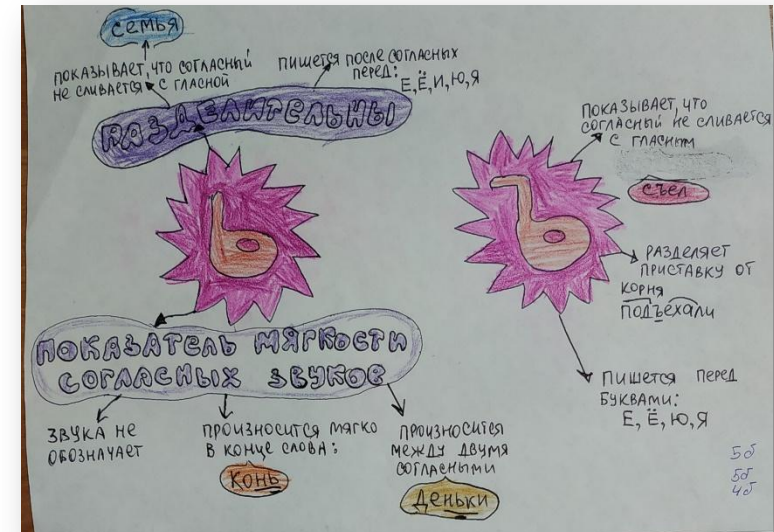 семья
ПОКАЗЫВАЕТ, ЧТО СОГЛАСНЫЙ
НЕ СЛИВАЕТСЯ С ГЛАСНОЙ
ПИШЕТСЯ ПОСЛЕ СОГЛАСНЫХ
ПЕРЕД:
Е, Ё, И, Ю, Я
РАЗДЕЛИТЕЛЬНЫ
Ь
ПОКАЗАТЕЛЬ МЯГКОСТИ
СОГЛАСНЫХ ЗВУКОВ
ЗВУКА НЕ
ОБОЗНАЧАЕТ
ПРОИЗНОСИТСЯ МЯГКО
В КОНЦЕ СЛОВА:
Конь
ПРОИЗНОСИТСЯ
МЕЖДУ ДВУМЯ
СОГЛАСНЫМИ
Деньки
Ъ
ПОКАЗЫВАЕТ, ЧТО
СОГЛАСНЫЙ НЕ СЛИВАЕТСЯ
С ГЛАСНЫМ
съел
РАЗДЕЛЯЕТ
ПРИСТАВКУ ОТ
КОРНЯ
ПОДЪЕХАЛИ
ПИШЕТСЯ ПЕРЕД
БУКВАМИ:
Е, Ё, Ю, Я
5б
5б
4б